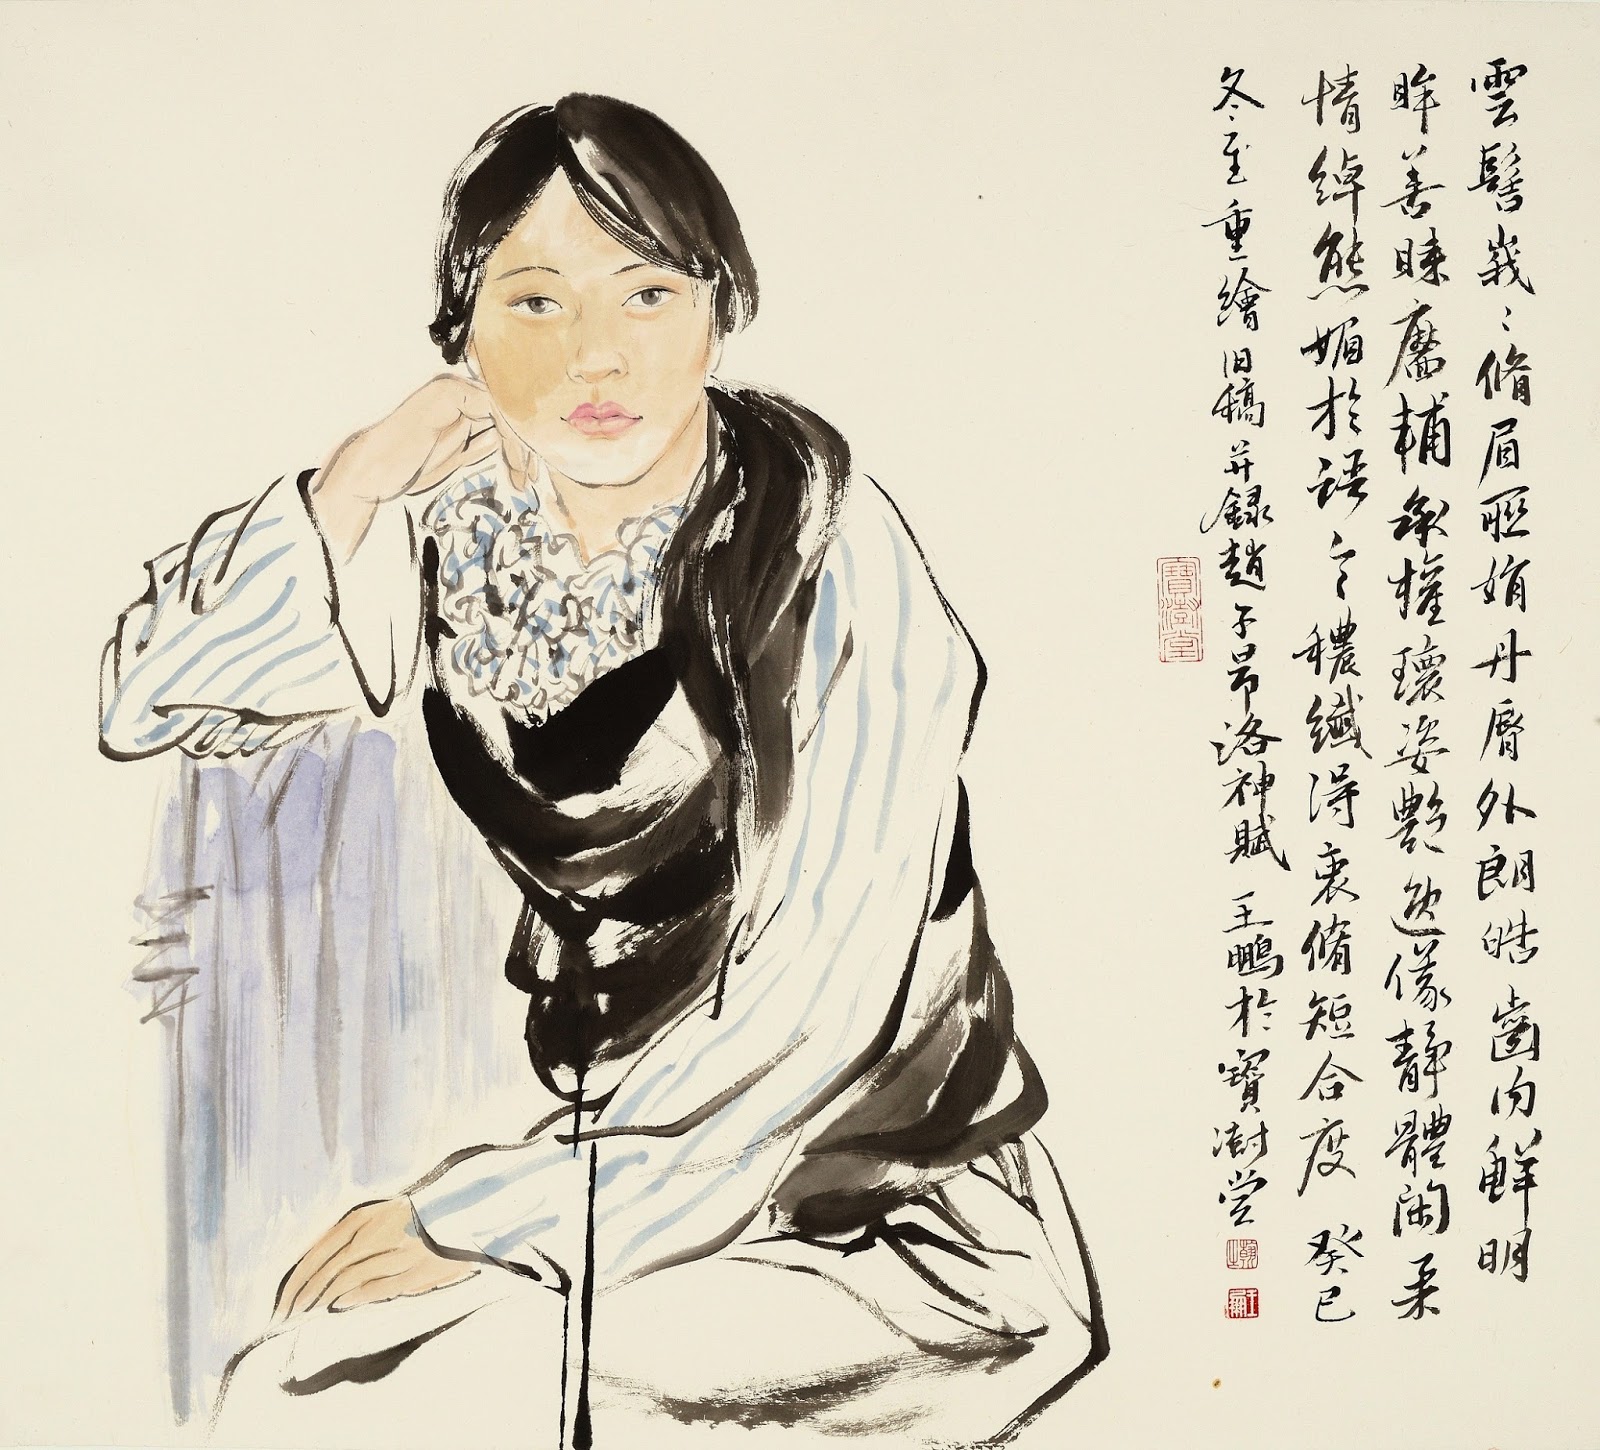 雲髻峩〻脩眉聯娟丹脣外朗皓齒内鮮明
眸善睐靨輔承權瓌姿艷逸儀靜體閑柔
情綽態媚於語言穠纖得衷脩短合度 癸巳
冬至重繪旧稿并録趙子昂洛神賦 王鵬於寶澍堂
寶澍堂